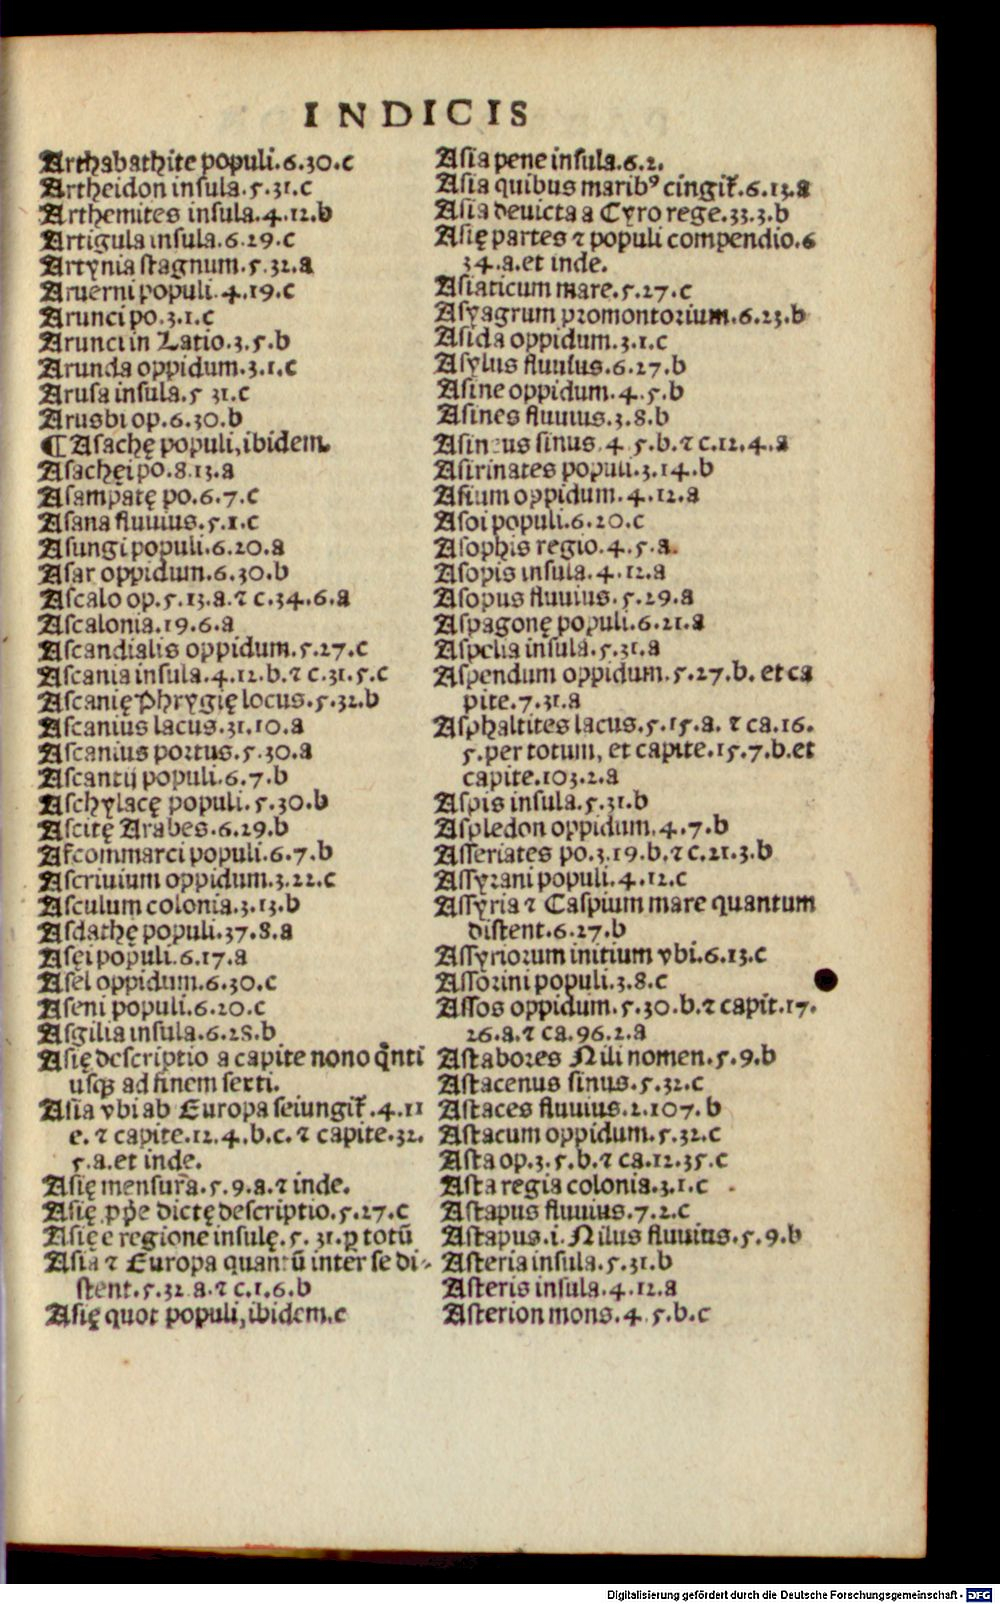 INDICIS
Arthabathite populi.6.30.c
Artheidon insula.5.31.c
Arthemites insula.4.12.b
Artigula insula.6.29.c
Artynia stagnum.5.32.a
Aruerni populi.4.19.c
Arunci po.3.1.c
Arunci in Latio.3.5.b
Arunda oppidum.3.1.c
Arusa insula.5 31.c
Arusbi op.6.30.b
¶ Asachę populi, ibidem.
Asachęi po.8.13.a
Asampatę po.6.7.c
Asana fluuius.5.1.c
Asungi populi.6.20.a
Asar oppidum.6.30.b
Ascalo op.5.13.a.⁊ c.34.6.a
Ascalonia.19.6.a
Ascandialis oppidum.5.27.c
Ascania insula.4.12.b.⁊ c.31.5.c
Ascanię Phrygię locus.5.32.b
Ascanius lacus.31.10.a
Ascanius portus.5.30.a
Ascantij populi.6.7.b
Aschylacę populi.5.30.b
Ascitę Arabes.6.29.b
Ascommarci populi.6.7.b
Ascriuium oppidum.3.22.c
Asculum colonia.3.13.b
Asdathę populi.37.8.a
Asęi populi.6.17.a
Asel oppidum.6.30.c
Aseni populi.6.20.c
Asgilia insula.6.28.b
Asię descriptio a capite nono q̃nti
usq; ad finem sexti.
Asia vbi ab Europa seiungit᷑.4.11
e.⁊ capite.12.4.b.c.⁊ capite.32.
5.a.et inde.
Asię mensura.5.9.a.⁊ inde.
Asię ꝓp̃e dictę descriptio.5.27.c
Asię e regione insulę.5.31.ꝑ totũ
Asia ⁊ Europa quantũ inter se di-
stent.5.32.a.⁊ c.1.6.b
Asię quot populi, ibidem.c
Asia pene insula.6.2.
Asia quibus maribꝰ cingit᷑.6.13.a
Asia deuicta a Cyro rege.33.3.b
Asię partes ⁊ populi compendio.6
34.a.et inde.
Asiaticum mare.5.27.c
Asyagrum promontorium.6.23.b
Asida oppidum.3.1.c
Asylus fluuius.6.27.b
Asine oppidum.4.5.b
Asines fluuius.3.8.b
Asineus sinus.4 5.b.⁊ c.12.4.a
Asirinates populi.3.14.b
Asium oppidum.4.12.a
Asoi populi.6.20.c
Asophis regio.4.5.a.
Asopis insula.4.12.a
Asopus fluuius.5.29.a
Aspagonę populi.6.21.a
Aspelia insula.5.31.a
Aspendum oppidum.5.27.b. et ca
pite.7.31.a
Asphaltites lacus.5.15.a. ⁊ ca.16.
5.per totum, et capite.15.7.b.et
capite.103.2.a
Aspis insula.5.31.b
Aspledon oppidum.4.7.b
Asseriates po.3.19.b.⁊ c.21.3.b
Assyrani populi.4.12.c
Assyria ⁊ Caspium mare quantum
distent.6.27.b
Assyriorum initium vbi.6.13.c
Assorini populi.3.8.c
Assos oppidum.5.30.b.⁊ capit.17.
26.a.⁊ ca.96.2.a
Astabores Nili nomen.5.9.b
Astacenus sinus.5.32.c
Astaces fluuius.2.107.b
Astacum oppidum.5.32.c
Asta op.3.5.b.⁊ ca.12.35.c
Asta regia colonia.3.1.c
Astapus fluuius.7.2.c
Astapus.i.Nilus fluuius.5.9.b
Asteria insula.5.31.b
Asteris insula.4.12.a
Asterion mons.4 5.b.c
Digitalisierung gefördert durch die Deutsche Forschungsgemeinschaft - DFG